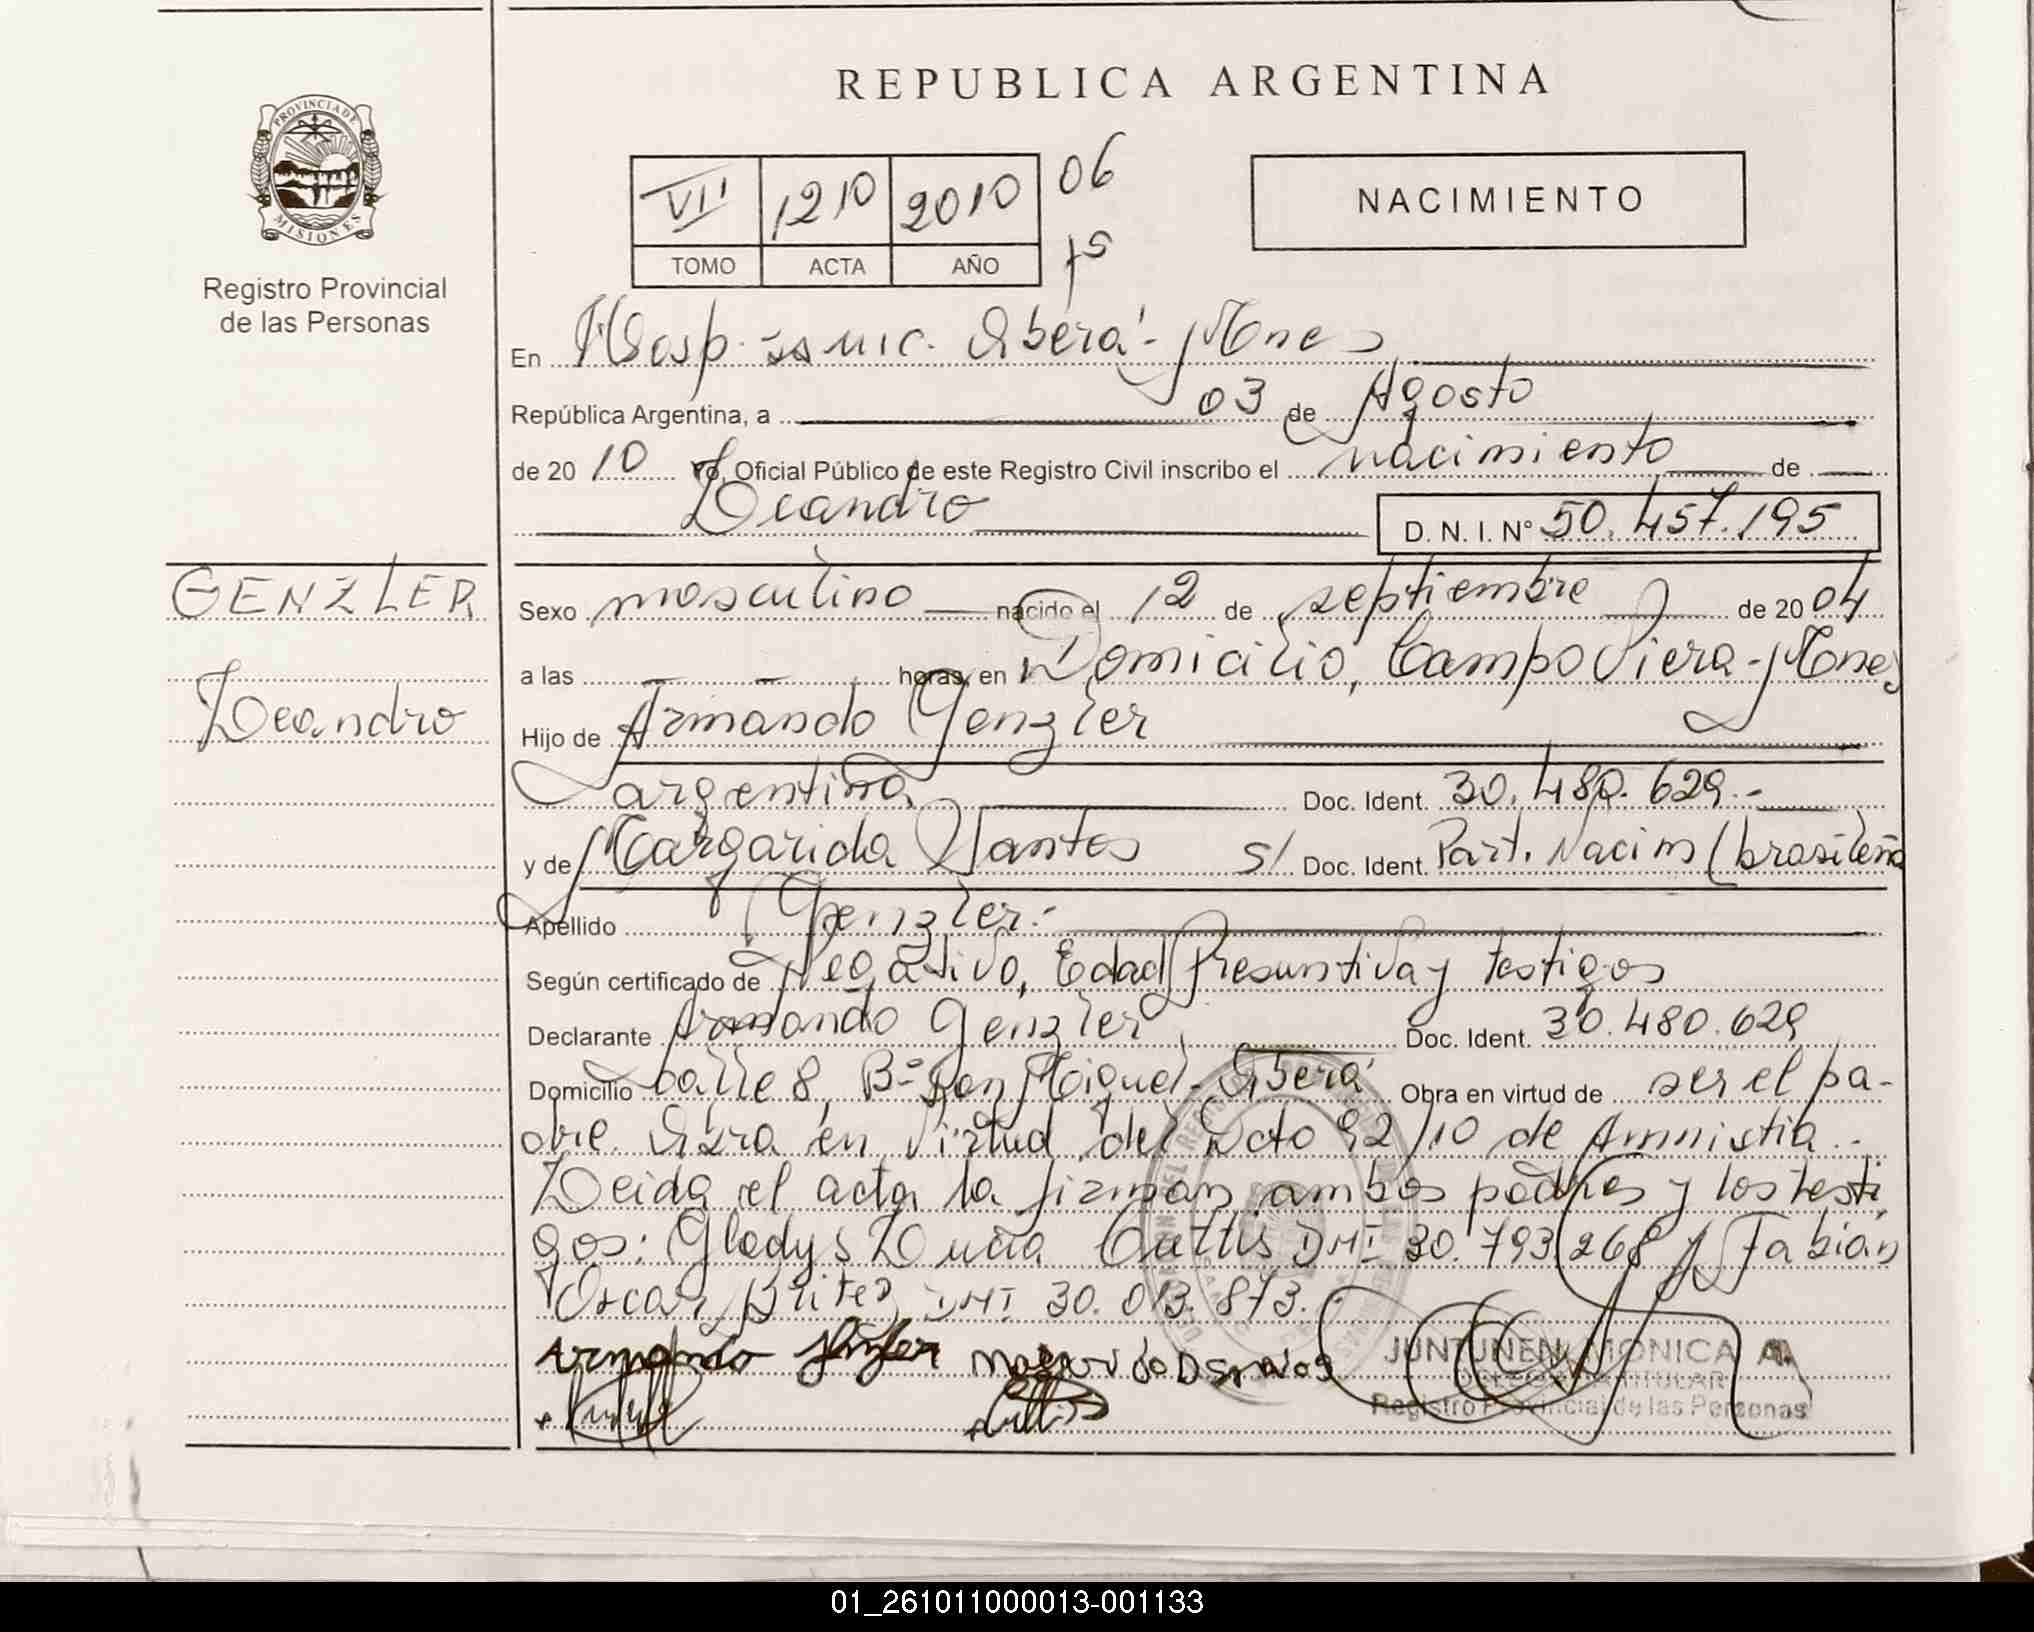 REPUBLICA ARGENTINA
PROVINCIA DE
MISIONES
Registro Provincial
de las Personas
VII 1210 2010 06
TOMO ACTA AÑO 15
NACIMIENTO
En Hosp. Samic. Oberá - Mnes
República Argentina, a 03 de Agosto
de 2010 Yo, Oficial Público de este Registro Civil inscribo el nacimiento de
Leandro D. N. I. Nº 50.457.195
GENZLER
Leandro
Sexo masculino nacido el 12 de septiembre de 2004
a las - - horas, en Domicilio, Campo Viera - Mnes
Hijo de Armando Genzler
argentina Doc. Ident. 30.480.629.-
y de Margarida Santos S/ Doc. Ident. Part. Nacim (brasileña
Apellido Genzler.-
Según certificado de Negativo, Edad Presuntiva y testigos
Declarante Armando Genzler Doc. Ident. 30.480.629
Domicilio Calle 8, Bº San Miguel - Oberá Obra en virtud de ser el pa-
dre. Obra en virtud del Dcto 92/10 de Amnistia.-
Leida el acta la firman ambos padres y los testi
gos: Gladys Lucia DNI 30.793.268 y Fabián
Oscar Britez DNI 30.013.873.-
Armando
JUNTUNEN MONICA A.
DELEGADA TITULAR
Registro Provincial de las Personas
01_261011000013-001133